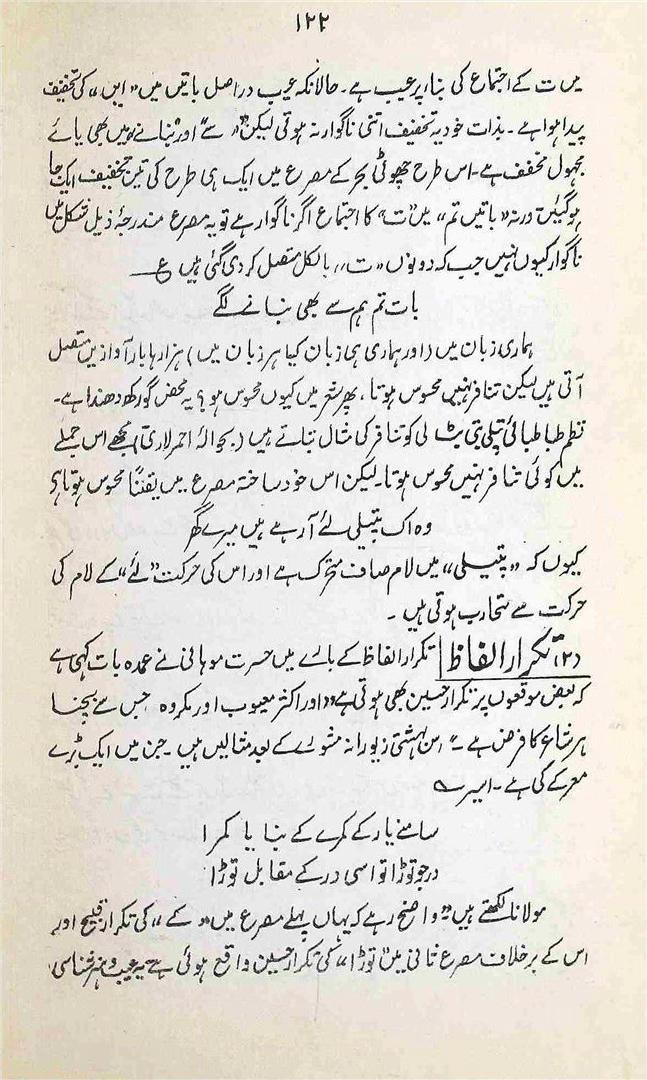 ۱۲۲
میں ت کے اجتماع کی بناء پر عیب ہے۔ حالانکہ عیب دراصل باتیں میں "یں" کی تخفیف
پیدا ہوا ہے۔ بذات خود یہ تخفیف اتنی ناگوار نہ ہوتی لیکن "سے" اور "بنانے" میں بھی یائے
مجہول مخفف ہے۔ اس طرح چھوٹی بحر کے مصرع میں ایک ہی طرح کی تین تخفیف ایک جا
ہوگئیں ورنہ "باتیں تم" میں "ت" کا اجتماع اگر ناگوار ہے تو یہ مصرع مندرجۂ ذیل شکل میں
ناگوار کیوں نہیں جب کہ دونوں "ت" بالکل متصل کر دی گئی ہیں ع
بات تم ہم سے بھی بنانے لگے
ہماری زبان میں (اور ہماری ہی زبان کیا ہر زبان میں) ہزارہا بار آوازیں متصل
آتی ہیں لیکن تنافر نہیں محسوس ہوتا، پھر شعر میں کیوں محسوس ہو؟ یہ محض گورکھ دھندا ہے۔
نظم طباطبائی پتلی بتی بٹ لی کو تنافر کی مثال بتاتے ہیں (بحوالۂ احمر لاری) مجھے اس جملے
میں کوئی تنافر نہیں محسوس ہوتا۔ لیکن اس خود ساختہ مصرع میں یقیناً محسوس ہوتا ہے
وہ اک پتیلی لئے آرہے ہیں میرے گھر
کیوں کہ "پتیلی" میں لام صاف متحرک ہے اور اس کی حرکت "لئے" کے لام کی
حرکت سے متحارب ہوتی ہیں۔
(۲) تکرار الفاظ تکرار الفاظ کے بارے میں حسرت موہانی نے عمدہ بات کہی ہے
کہ بعض موقعوں پر تکرار حسین بھی ہوتی ہے "اور اکثر معیوب اور مکروہ جس سے بچنا
ہر شاعر کا فرض ہے۔" اس بہشتی زیورانہ مشورے کے بعد مثالیں ہیں۔ جن میں ایک بڑے
معرکے کی ہے۔ اسیر ؎
سامنے یار کے کمرے کے بنایا کمرا
در جو توڑا تو اسی در کے مقابل توڑا
مولانا لکھتے ہیں "واضح رہے کہ یہاں پہلے مصرع میں "کے" کی تکرار قبیح اور
اس کے برخلاف مصرع ثانی میں "توڑا" کی تکرار حسین واقع ہوئی ہے" یہ عیب و ہنر شناسی